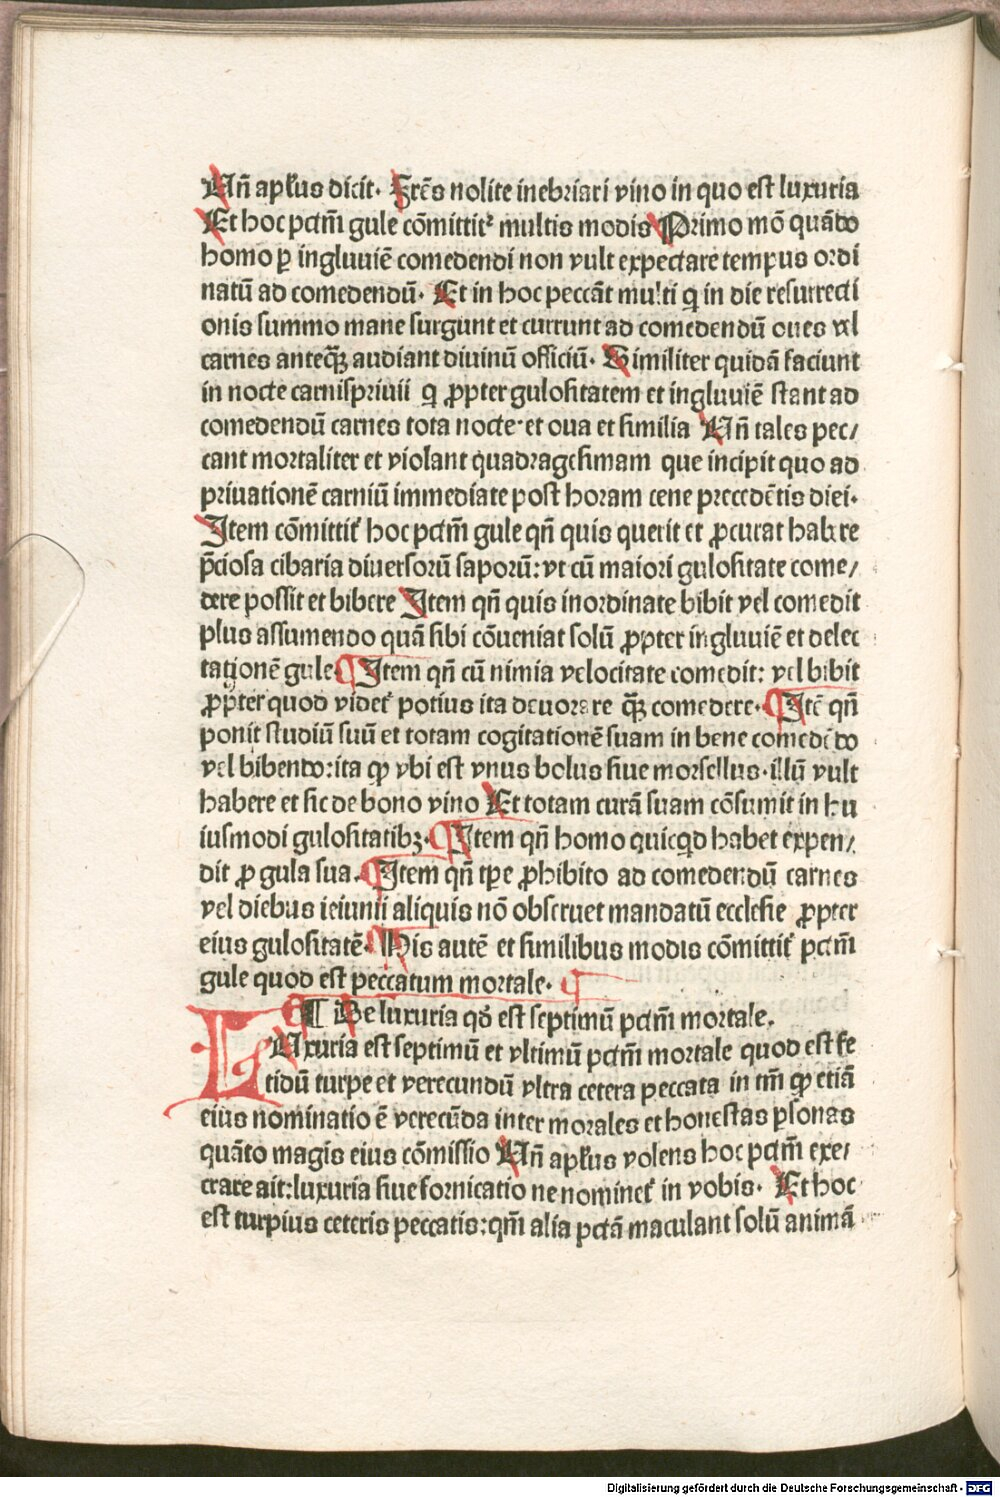 Uñ apl'us dicit. Frēs nolite inebriari vino in quo est luxuria
Et hoc pctm̄ gule cōmittit᷑ multis modis Primo mō quādo
homo ꝑ ingluuiē comedendi non vult expectare tempus ordi
natū ad comedendū. Et in hoc peccāt multi q̨ in die resurrecti
onis summo mane surgunt et currunt ad comedendū oues vel
carnes anteq̄ꝫ audiant diuinū officiū. Similiter quidā faciunt
in nocte carnispriuii q̨ ꝓpter gulositatem et ingluuiē stant ad
comedendū carnes tota nocte et oua et similia Uñ tales pec/
cant mortaliter et violant quadragesimam que incipit quo ad
priuationē carniū immediate post horam cene precedētis diei.
Item cōmittit᷑ hoc pctm̄ gule qñ quis querit et ꝓcurat habere
p̄ciosa cibaria diuersorū saporū: vt cū maiori gulositate come/
dere possit et bibere Item qñ quis inordinate bibit vel comedit
plus assumendo quā sibi cōueniat solū ꝓpter ingluuiē et delec
tationē gule. ¶ Item qñ cū nimia velocitate comedit: vel bibit
ꝓpter quod videt᷑ potius ita deuorare q̄ꝫ comedere. ¶ Itē qñ
ponit studiū suū et totam cogitationē suam in bene comedēdo
vel bibendo: ita ꝙ vbi est vnus bolus siue morsellus. illū vult
habere et sic de bono vino Et totam curā suam cōsumit in hu
iusmodi gulositatibꝫ. ¶ Item qñ homo quicqd habet expen/
dit ꝓ gula sua. ¶ Item qñ tꝑe ꝓhibito ad comedendū carnes
vel diebus ieiunii aliquis nō obseruet mandatū ecclesie ꝓpter
eius gulositatē. ¶ His autē et similibus modis cōmittit᷑ pctm̄
gule quod est peccatum mortale. ¶
¶ De luxuria qđ est septimū pctm̄ mortale.
LUxuria est septimū et vltimū pctm̄ mortale quod est fe
tidū turpe et verecundū vltra cetera peccata in tm̄ ꝙ etiā
eius nominatio ē verecūda inter morales et honestas ꝑsonas
quāto magis eius cōmissio Uñ apl'us volens hoc pctm̄ exe/
crare ait: luxuria siue fornicatio ne nominet᷑ in vobis. Et hoc
est turpius ceteris peccatis: qm̄ alia pctā maculant solū animā
Digitalisierung gefördert durch die Deutsche Forschungsgemeinschaft - DFG